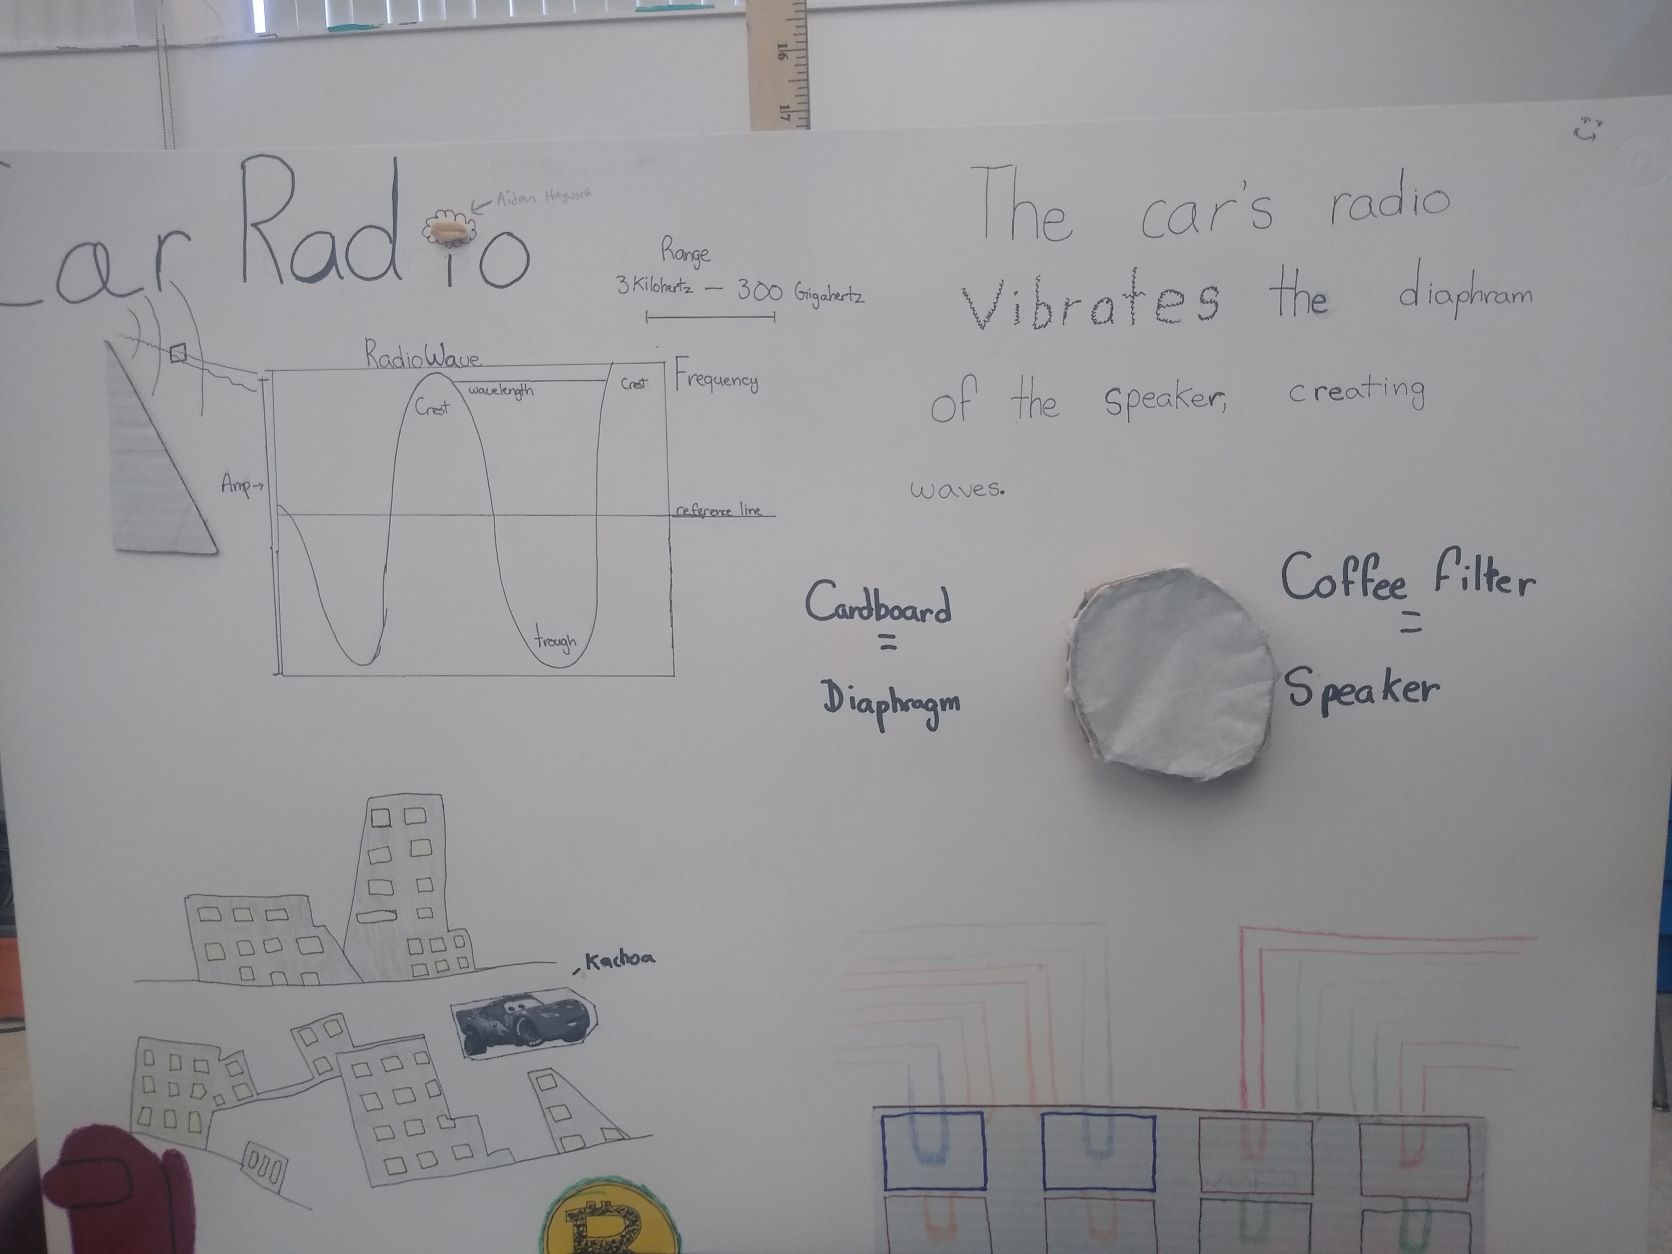 16
17
Car Radio
Aidan
Range
3 Kilohertz — 300 Gigahertz
Radio Wave
Frequency
wavelength
Crest
Crest
Amp→
reference line
trough
The car's radio
Vibrates the diaphram
of the speaker, creating
waves.
Cardboard
=
Diaphragm
Coffee filter
=
Speaker
Kachoa
B